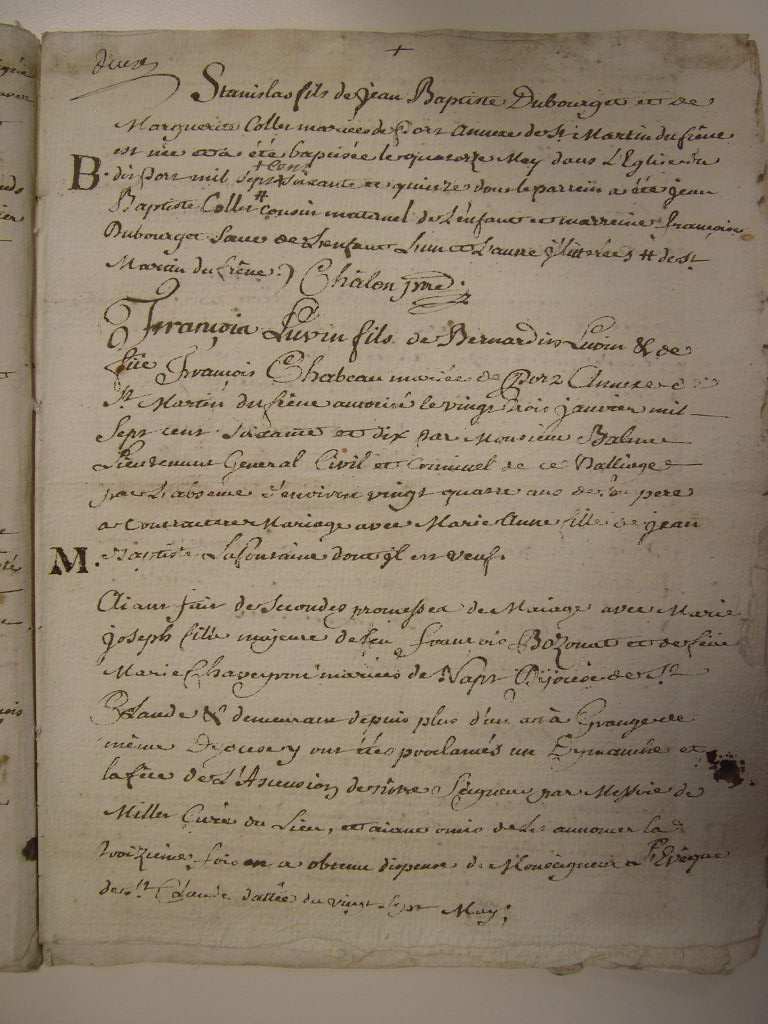 Stanislas fils de jean Baptiste Dubourget et de
Marguerite Collet mariés de Port annexe de St Martin du frêne
est née et a été baptisée le quatorze May dans L'Eglise du
dis Port mil sept cent soixante et quinze dont le parrein a été jean
Baptiste Collet # cousin maternel de L'enfant et marreine françoise
Dubourget Saeur de L'enfant L'un et L'autre illitérées # de St
Martin du frêne. Châlon
B.
François Luvin fils de Bernardin Luvin & de
fûe François Chabeau mariée de Port Annexe de
St Martin du frêne autorisé le vingt trois janvier mil
Sept cent soixante et dix par Monsieur Balme
Lieutenant General Civil et Criminel de ce Balliage
par L'absence d'environ vingt quatre ans de son pere
a contracter Mariage avec Marie Anne fille de jean
M.
Baptiste Lafontaine dont il est veuf.
Aiant fait de secondes promesses de Mariage avec Marie
joseph fille majeure de feu françois Bozonat et de fûe
Marie Chaveyron mariées de Napt Diocese de St
Claude & demeurant depuis plus d'un an à Grange de
même Diocese y ont étés proclamés un Dymanche et
la fête de L'Ascension de nôtre Seigneur par Messire de
Millet Curé du Lieu, et aiant omis de les annoncer la
troizieme fois on a obtenu dispense de Monseigneur L'Evêque
de St Claude dattée du vingt sept May;